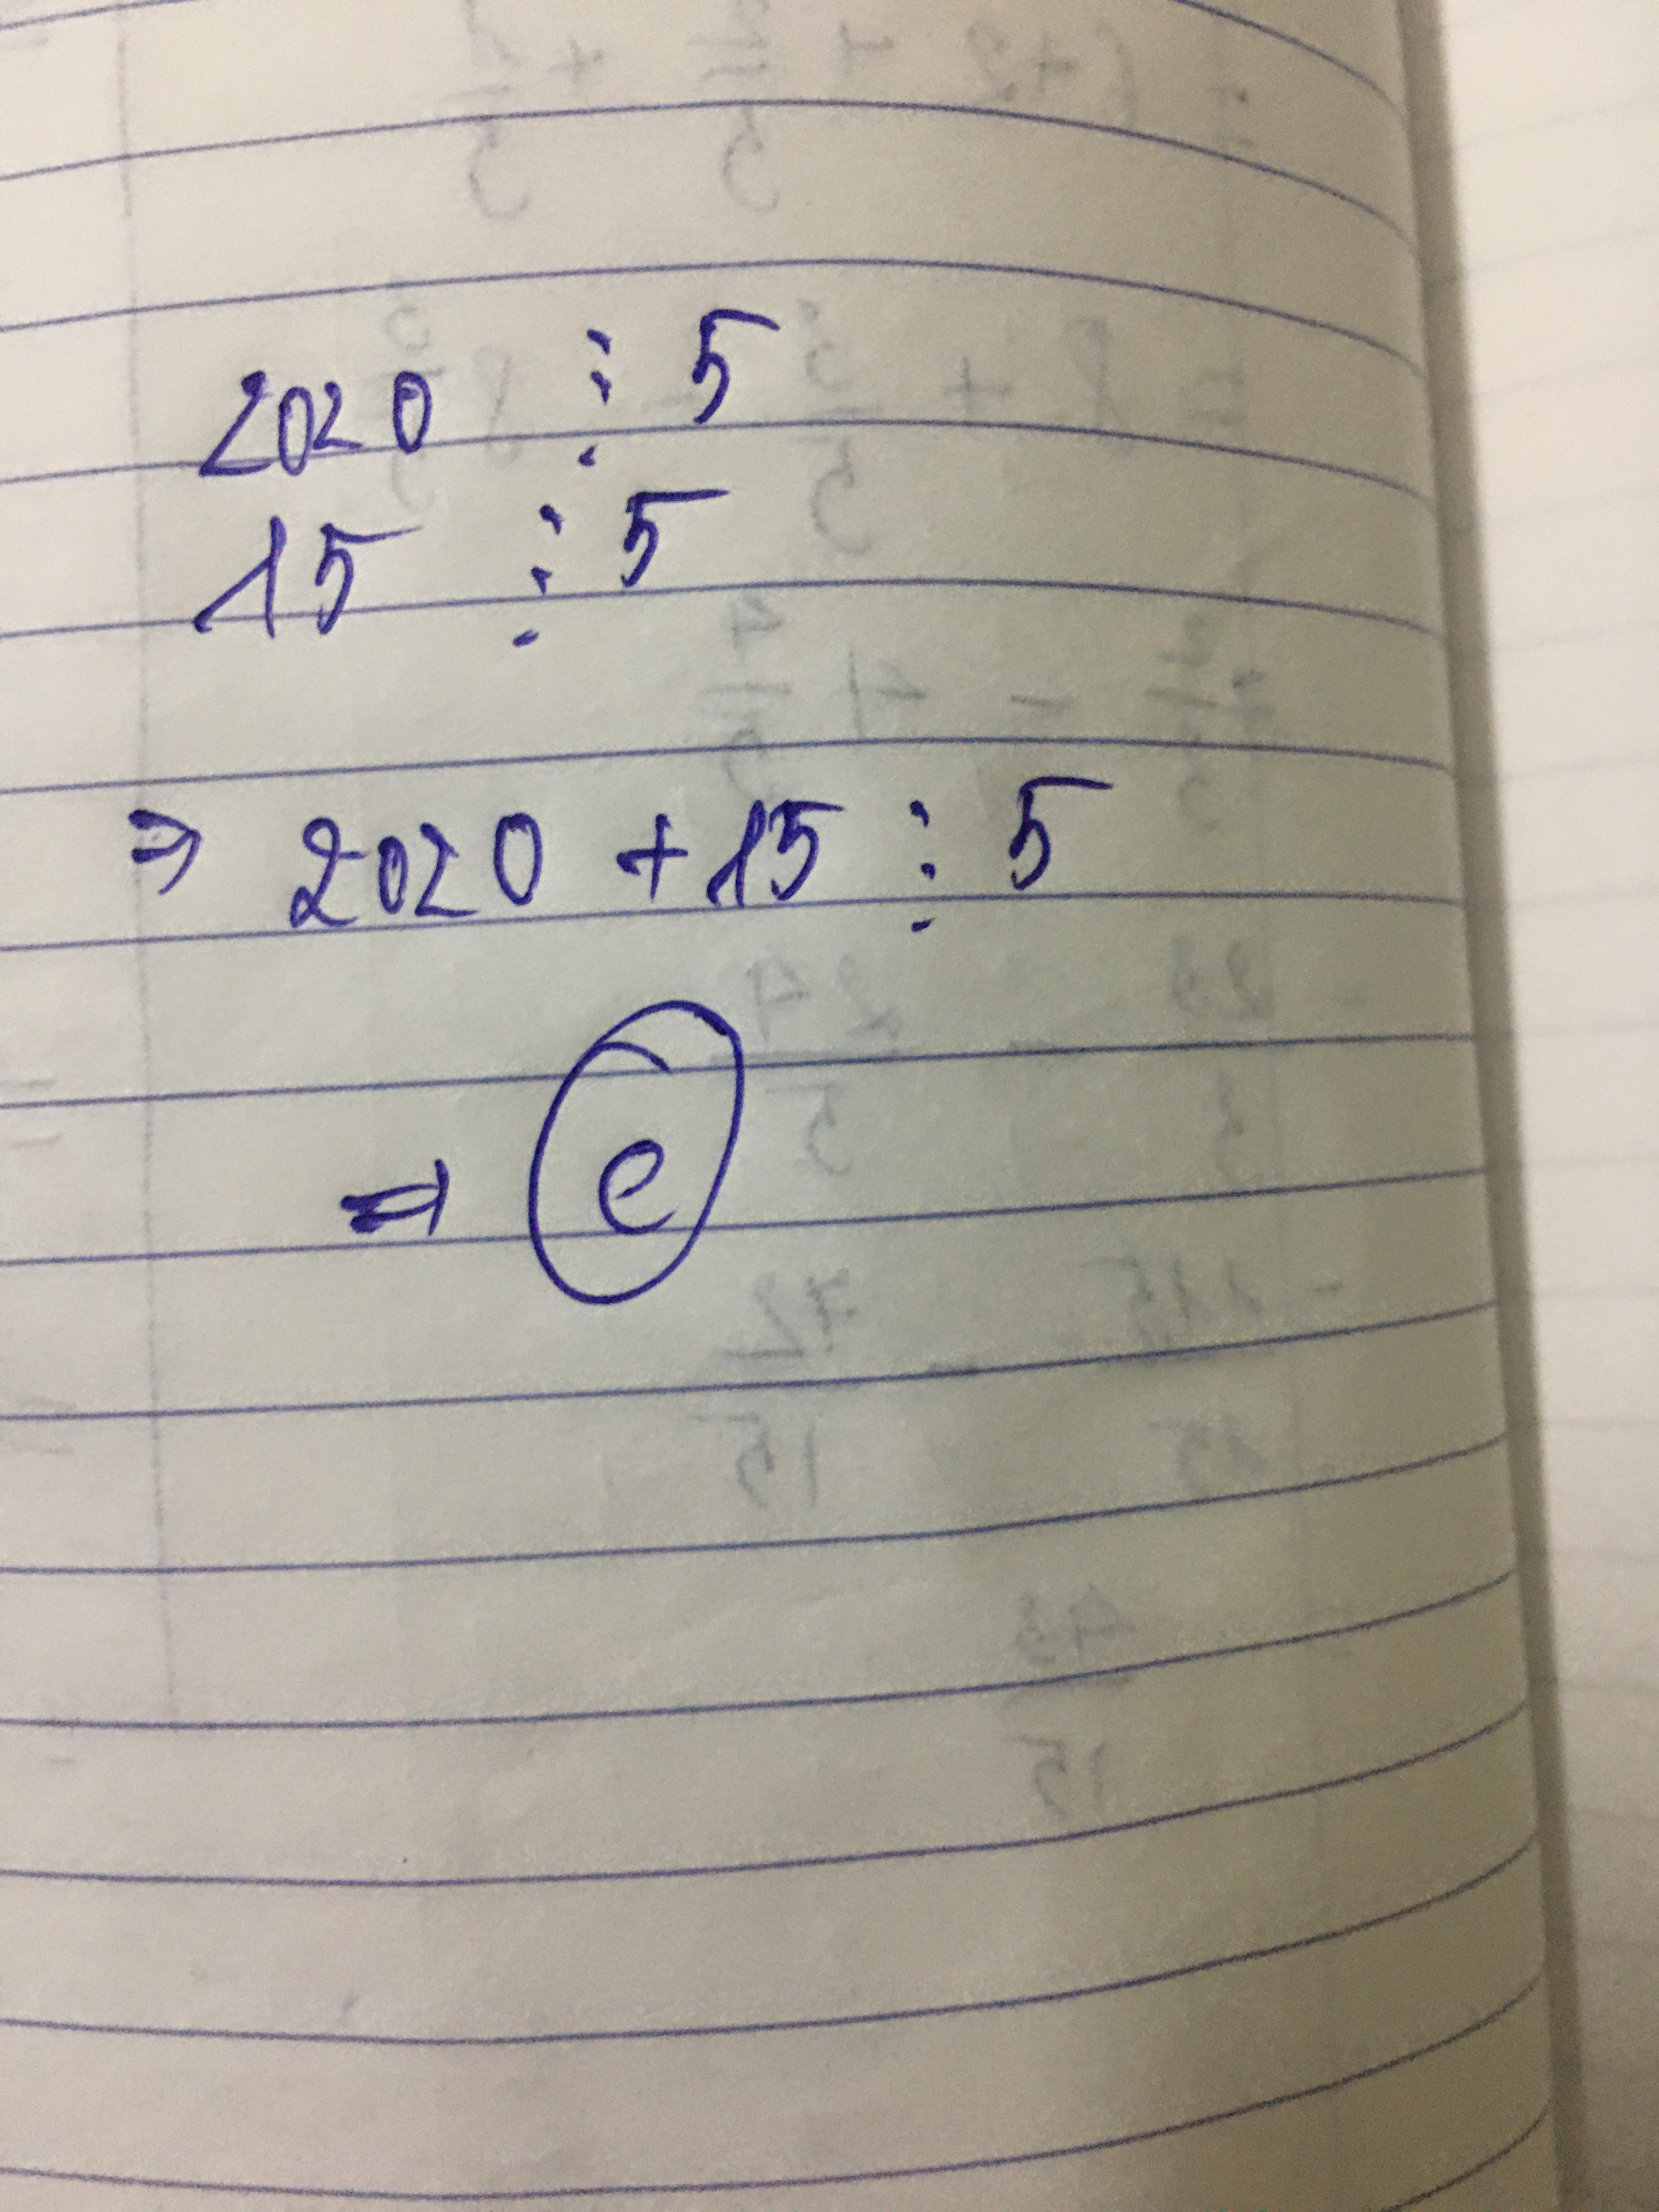 2020 ⋮ 5
15 ⋮ 5
⇒ 2020 + 15 ⋮ 5
⇒ C